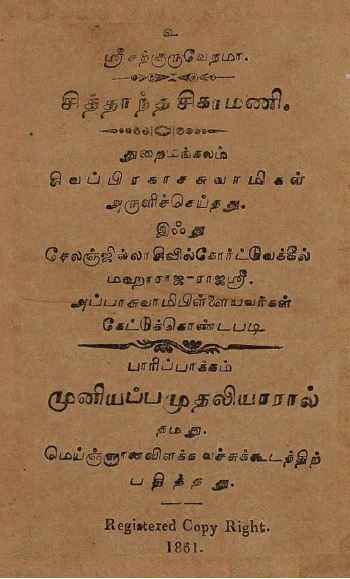 உ
ஸ்ரீசற்குருவேநமா.
சித்தாந்தசிகாமணி.
துறைமங்கலம்
சிவப்பிரகாசசுவாமிகள்
அருளிச்செய்தது.
இஃது
சேலஞ்ஜில்லாசிவில்கோர்ட்வேக்கீல்
மஹாராஜ-ராஜஸ்ரீ.
அப்பாசுவாமிபிள்ளையவர்கள்
கேட்டுக்கொண்டபடி
பாரிப்பாக்கம்
முனியப்பமுதலியாரால்
தமது.
மெய்ஞ்ஞானவிளக்கவச்சுக்கூடத்திற்
பதித்தது.
Registered Copy Right.
1861.